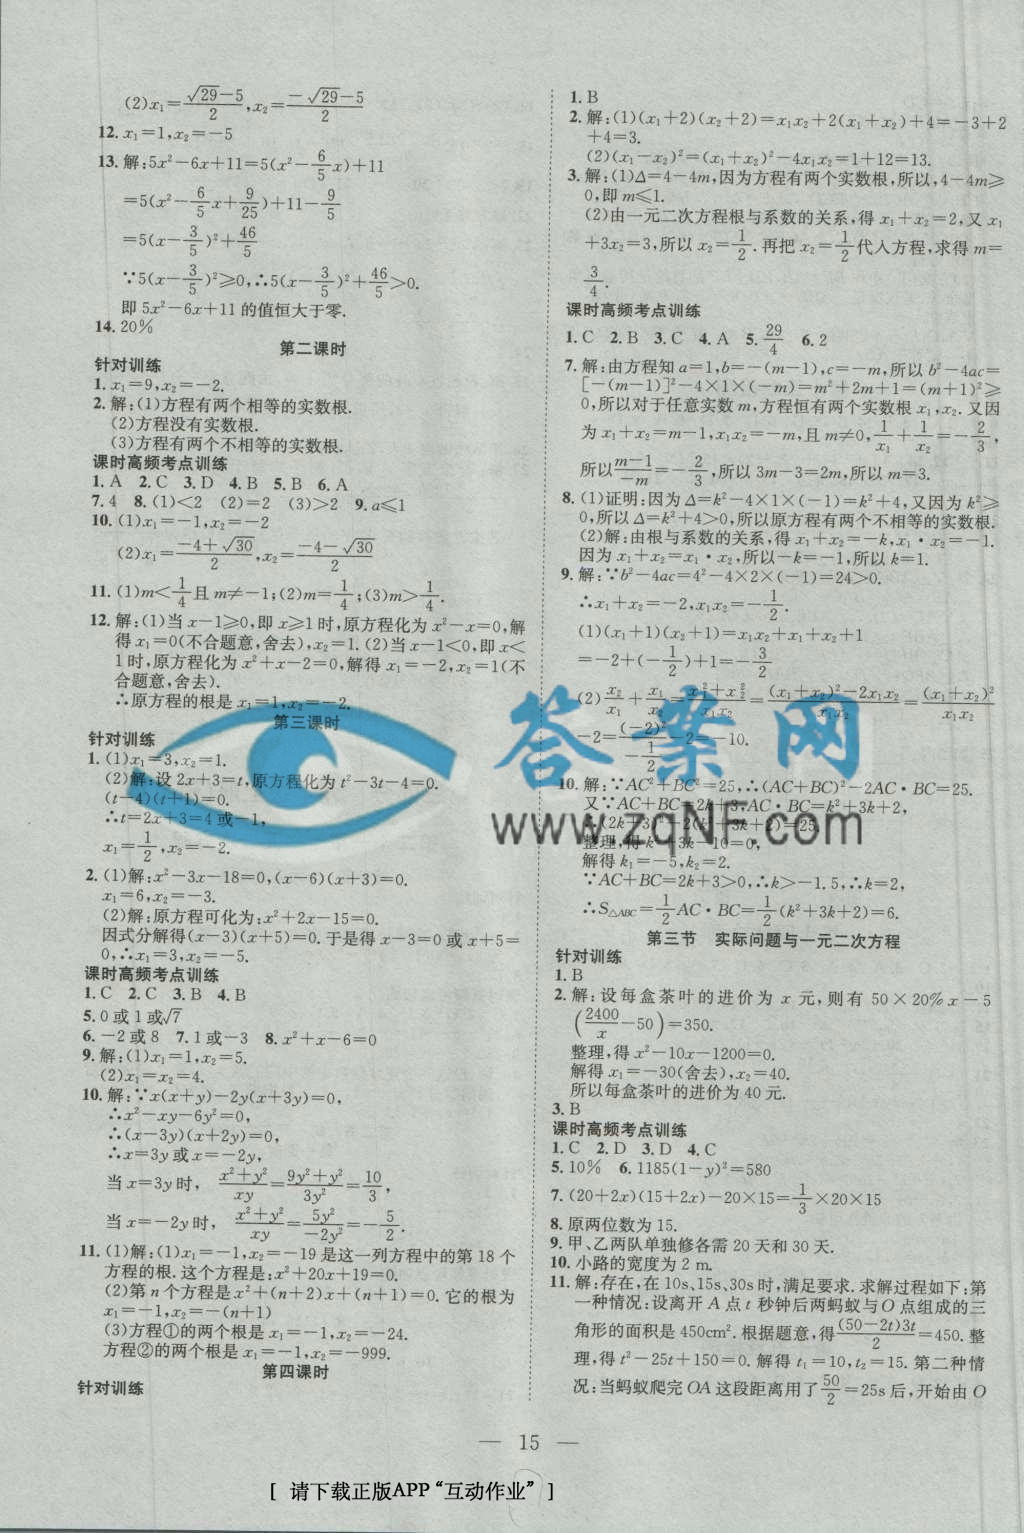 (2)x₁=(√29-5)/2,x₂=(-√29-5)/2
12. x₁=1,x₂=-5
13. 解:5x²-6x+11=5(x²-6/5x)+11
=5(x²-6/5x+9/25)+11-9/5
=5(x-3/5)²+46/5
∵5(x-3/5)²≥0,∴5(x-3/5)²+46/5>0.
即 5x²-6x+11 的值恒大于零.
14. 20%
第二课时
针对训练
1. x₁=9,x₂=-2.
2. 解:(1)方程有两个相等的实数根.
(2)方程没有实数根.
(3)方程有两个不相等的实数根.
课时高频考点训练
1. A 2. C 3. D 4. B 5. B 6. A
7. 4 8. (1)<2 (2)=2 (3)>2 9. a≤1
10. (1)x₁=-1,x₂=-2
(2)x₁=(-4+√30)/2,x₂=(-4-√30)/2
11. (1)m<1/4且 m≠-1;(2)m=1/4;(3)m>1/4.
12. 解:(1)当 x-1≥0,即 x≥1 时,原方程化为 x²-x=0,解
得 x₁=0(不合题意,舍去),x₂=1. (2)当 x-1<0,即 x<
1时,原方程化为 x²+x-2=0,解得 x₁=-2,x₂=1(不
合题意,舍去).
∴原方程的根是 x₁=1,x₂=-2.
第三课时
针对训练
1. (1)x₁=3,x₂=1.
(2)解:设 2x+3=t,原方程化为 t²-3t-4=0.
(t-4)(t+1)=0.
∴t=2x+3=4 或-1,
x₁=1/2,x₂=-2.
2. (1)解:x²-3x-18=0,(x-6)(x+3)=0.
x₁=6,x₂=-3.
(2)解:原方程可化为:x²+2x-15=0.
因式分解得(x-3)(x+5)=0. 于是得 x-3=0 或 x+5=
0,∴x₁=3,x₂=-5.
课时高频考点训练
1. C 2. C 3. B 4. B
5. 0 或 1 或√7
6. -2 或 8 7. 1 或-3 8. x²+x-6=0
9. 解:(1)x₁=1,x₂=5.
(2)x₁=x₂=4.
10. 解:∵x(x+y)-2y(x+3y)=0,
∴x²-xy-6y²=0,
∴(x-3y)(x+2y)=0,
∴x=3y 或 x=-2y,
当 x=3y 时, (x²+y²)/xy=(9y²+y²)/3y²=10/3,
当 x=-2y 时, (x²+y²)/xy=5y²/-2y²=-5/2.
11. (1)解:(1)x₁=-1,x₂=-19 是这一列方程中的第 18 个
方程的根. 这个方程是:x²+20x+19=0.
(2)第 n 个方程是 x²+(n+2)x+(n+1)=0. 它的根为
x₁=-1,x₂=-(n+1)
(3)方程①的两个根是 x₁=-1,x₂=-24.
方程②的两个根是 x₁=-1,x₂=-999.
第四课时
针对训练
1. B
2. 解:(1)(x₁+2)(x₂+2)=x₁x₂+2(x₁+x₂)+4=-3+2
+4=3.
(2)(x₁-x₂)²=(x₁+x₂)²-4x₁x₂=1+12=13.
3. 解:(1)Δ=4-4m,因为方程有两个实数根,所以,4-4m≥
0,即 m≤1.
(2)由一元二次方程根与系数的关系,得 x₁+x₂=2,又 x₁
+3x₂=3,所以 x₂=1/2. 再把 x₂=1/2代入方程,求得 m=
3/4.
课时高频考点训练
1. C 2. B 3. C 4. A 5. 29/4 6. 2
7. 解:由方程知 a=1,b=-(m-1),c=-m,所以 b²-4ac=
[-(m-1)]²-4×1×(-m)=m²+2m+1=(m+1)²≥
0,所以对于任意实数 m,方程恒有两个实数根 x₁,x₂. 又因
为 x₁+x₂=m-1,x₁x₂=-m,且 m≠0,1/x₁+1/x₂=-2/3,
所以(m-1)/-m=-2/3,所以 3m-3=2m,所以 m=3.
8. (1)证明:因为 Δ=k²-4×1×(-1)=k²+4,又因为 k²≥
0,所以 Δ=k²+4>0,所以原方程有两个不相等的实数根.
(2)解:由根与系数的关系,得 x₁+x₂=-k,x₁·x₂=-1.
因为 x₁+x₂=x₁·x₂,所以-k=-1,所以 k=1.
9. 解:∵b²-4ac=4²-4×2×(-1)=24>0.
∴x₁+x₂=-2,x₁x₂=-1/2.
(1)(x₁+1)(x₂+1)=x₁x₂+x₁+x₂+1
=-2+(-1/2)+1=-3/2
(2)x₂/x₁+x₁/x₂=(x₁²+x₂²)/x₁x₂=((x₁+x₂)²-2x₁x₂)/x₁x₂=(x₁+x₂)²/x₁x₂
-2=(-2)²/(-1/2)-2=-10.
10. 解:∵AC²+BC²=25,∴(AC+BC)²-2AC·BC=25.
又∵AC+BC=2k+3,AC·BC=k²+3k+2,
∴(2k+3)²-2(k²+3k+2)=25.
整理,得 k²+3k-10=0,
解得 k₁=-5,k₂=2.
∵AC+BC=2k+3>0,∴k>-1.5,∴k=2,
∴S△ABC=1/2AC·BC=1/2(k²+3k+2)=6.
第三节 实际问题与一元二次方程
针对训练
1. B
2. 解:设每盒茶叶的进价为 x 元,则有 50×20% x-5
(2400/x-50)=350.
整理,得 x²-10x-1200=0.
解得 x₁=-30(舍去),x₂=40.
所以每盒茶叶的进价为 40 元.
3. B
课时高频考点训练
1. C 2. D 3. D 4. C
5. 10% 6. 1185(1-y)²=580
7. (20+2x)(15+2x)-20×15=1/3×20×15
8. 原两位数为 15.
9. 甲、乙两队单独修各需 20 天和 30 天.
10. 小路的宽度为 2 m.
11. 解:存在,在 10s、15s、30s 时,满足要求. 求解过程如下:第
一种情况:设离开 A 点 t 秒钟后两蚂蚁与 O 点组成的三
角形的面积是 450cm². 根据题意,得(50-2t)3t/2=450. 整
理,得 t²-25t+150=0. 解得 t₁=10,t₂=15. 第二种情
况:当蚂蚁爬完 OA 这段距离用了50/2=25s 后,开始由 O
答案网
www.zqNF.com
— 15 —
[ 请下载正版APP“互动作业” ]